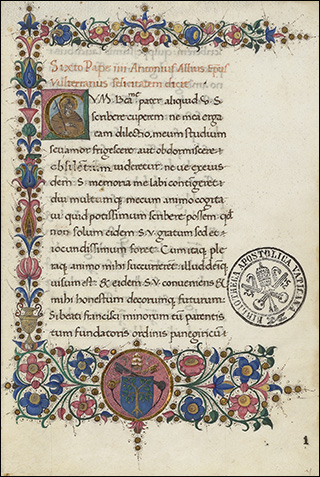 Saxto Pape iiii Antonius Allius Eps
Vulterranus felicitatem dicit
CVM. Bea.me pater aliquid S. S.
scribere cuperem ne mei erga
eam dilectio, meum studium
seu amor frigescere aut obdormiscere
videretur ne ve ex eiusdem
dem. S. memoria me labi contigeret:
diu multumque mecum animo cogita
vi quid potissimum scribere possem qd
non solum eidem S. V. gratum sed et
iocundissimum foret. Cum itaque ple
raque animo mihi succurrerent illud denique
visum est & eidem S V. conveniens &
mihi honestum decorumque futurum.
Si beati francisci minorum tum parentis
tum fundatoris ordinis panegiricum
BIBLIOTHECA APOSTOLICA VATICANA
1